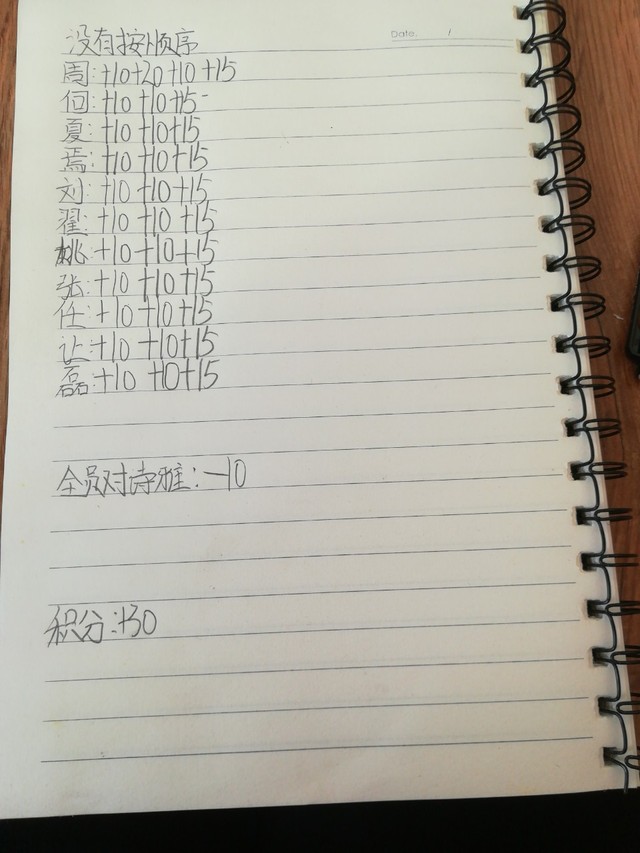 没有按顺序
Date. /
周:+10+20+10+15
何:+10+10+15-
夏:+10+10+15
焉:+10+10+15
刘:+10+10+15
翟:+10+10+15
桃:+10+10+15
张:+10+10+15
任:+10+10+15
让:+10+10+15
磊:+10+10+15
全员对诗雅:-10
积分:+30